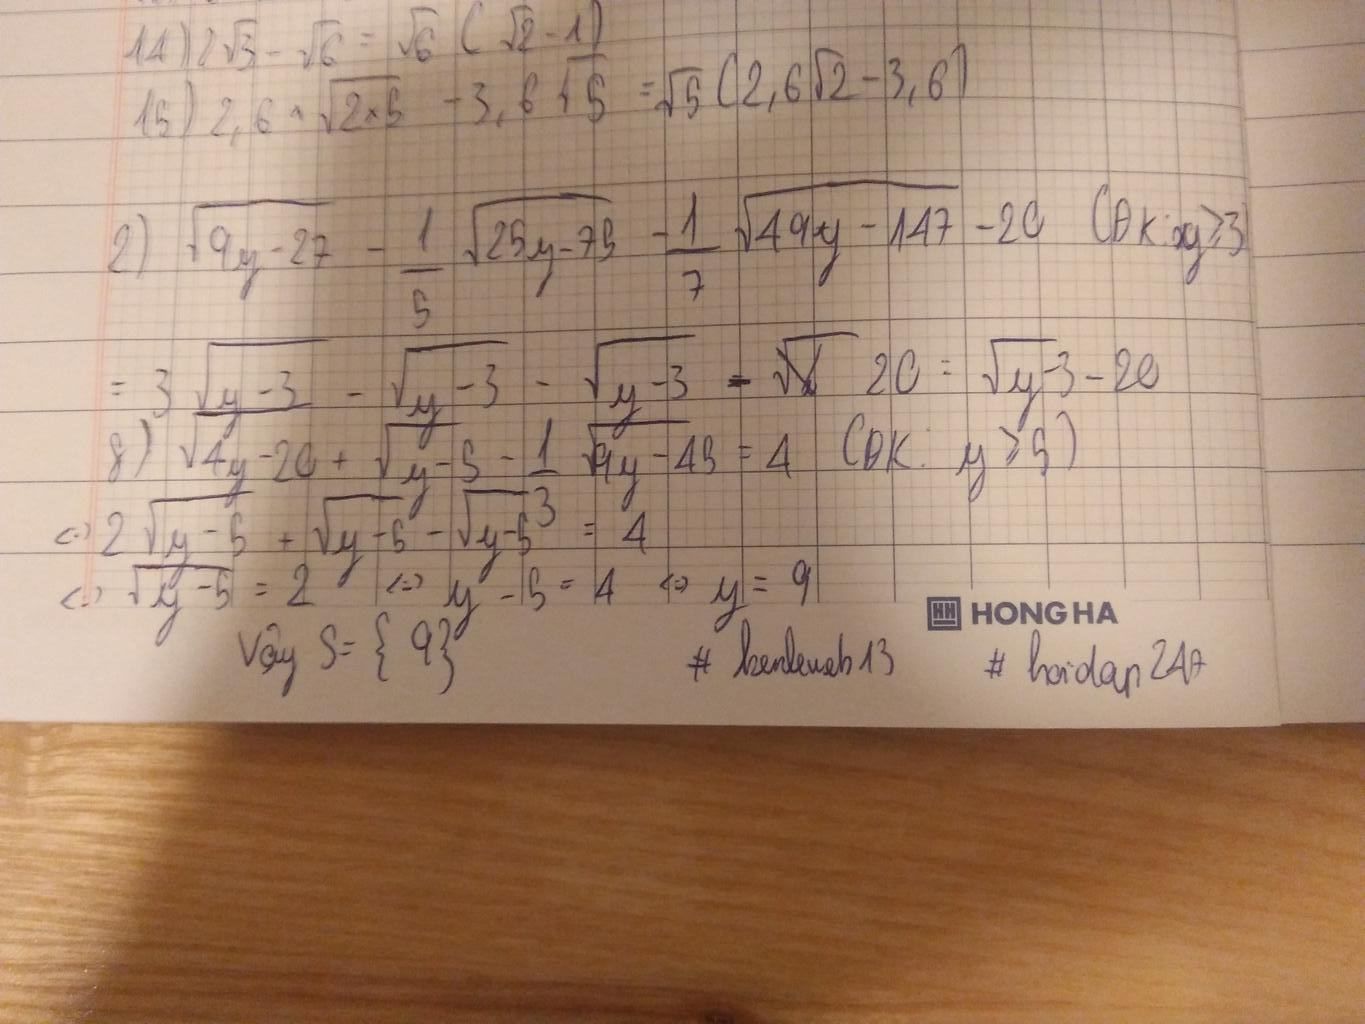 14) 2√3 - √6 = √6 ( √2 - 1)
15) 2,6 × √2×5 - 3,6 √5 = √5 (2,6√2 - 3,6)
2) √9y-27 - 1/5 √25y-75 - 1/7 √49y-147 - 20 (ĐK: y≥3)
= 3 √y-3 - √y-3 - √y-3 - 20 = √y-3 - 20
8) √4y-20 + √y-5 - 1/3 √9y-45 = 4 (ĐK: y≥5)
<=> 2 √y-5 + √y-5 - √y-5 = 4
<=> √y-5 = 2 <=> y - 5 = 4 <=> y = 9
HH HONG HA
Vậy S = { 9 }
# hoidap247